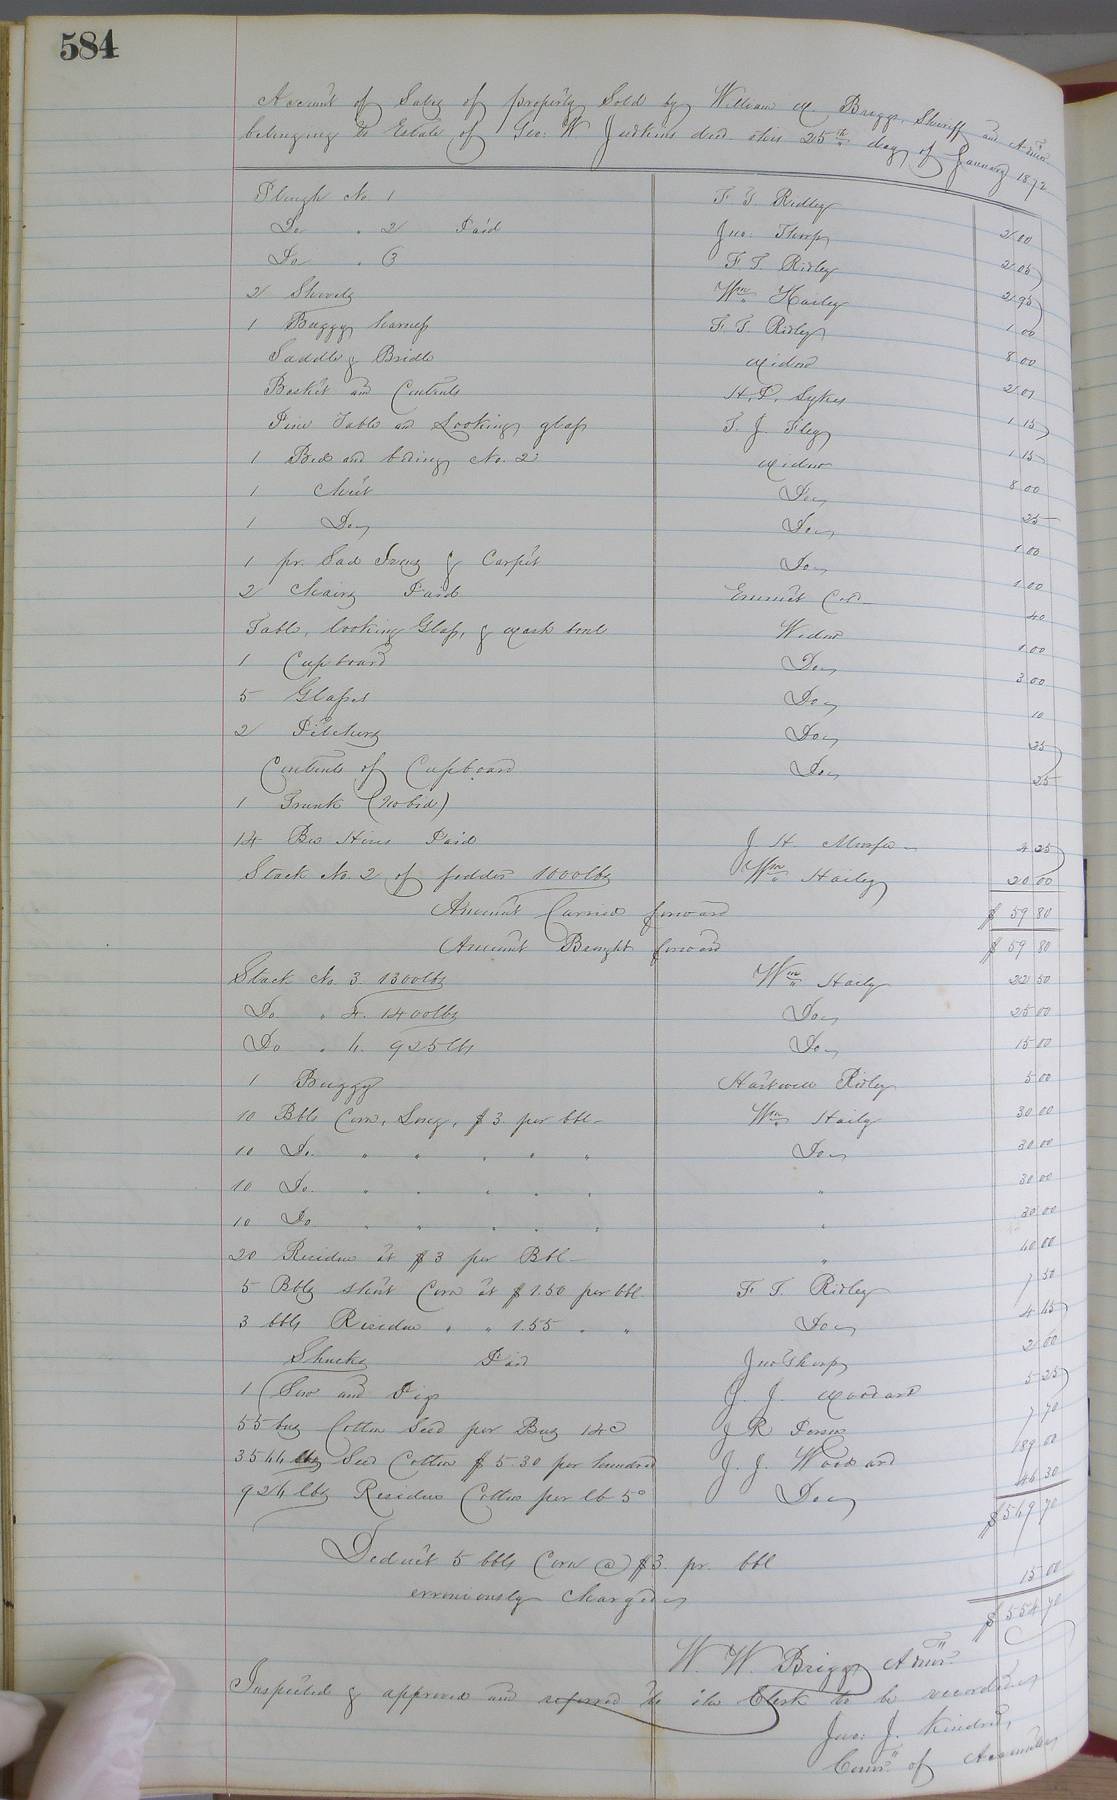 584
Account of Sales of property Sold by William W. Briggs, Sheriff and Admr
belonging to Estate of Geo: W Judkins decd. this 25th day of January 1872
Plough No. 1 F T. Ridley 2 00
Do " 2 Paid Jno: Thorp 2 05
Do " 3 F T. Ridley 2 95
2 Shovels Wm Hailey 1 00
1 Buggy harness F. T. Ridley 8 00
Saddle & Bridle Widow 2 00
Basket and Contents H. P. Sykes 1 15
Pine Table and Looking glass T. J. 1 15
1 Bed and beding No. 2 Widow 8 00
1 Chest Do 25
1 Do Do 1 00
1 pr. Sad Irons & Carpet Do 1 00
2 Chairs Paid Emmet Col 40
Table, looking Glass, & wash bowl Widow 1 00
1 Cupboard Do 3 00
5 Glasses Do 10
2 Pitchers Do 25
Contents of Cupboard Do 25
1 Trunk (No bid)
14 Bee Hives Paid J H 4 25
Stack No. 2 of fodder 1000lbs Wm Hailey 20 00
Amount Carried forward $ 59 80
Amount Brought forward $ 59 80
Stack No. 3. 1300lbs Wm Haily 22 50
Do " 4. 1400lbs Do 25 00
Do " 5. 925lbs Do 15 00
1 Buggy Hartwell Ridley 5 00
10 Bbls Corn, Long, $3 per bbl Wm Haily 30 00
10 Do. " " " " " Do 30 00
10 Do. " " " " " " 30 00
10 Do " " " " " " 30 00
20 Residue at $3 per Bbl " 60 00
5 Bbls short Corn at $1.50 per bbl F. T. Ridley 7 50
3 bbls Residue " " 1.55 " " Do 4 65
Shucks Paid Jno Thorp 2 60
1 Sow and Pigs J. J. Woodard 5 25
55 bus Cotton Seed per Bus 14c J R 7 70
3566 lbs Seed Cotton $5.30 per hundred J. J. Woodard 189 00
926 lbs Residue Cotton per lb 5c Do 46 30
$569 70
Deduct 5 bbls Corn @ $3. pr. bbl 15 00
erroniously Charged $554 70
W. W. Briggs Admr.
Inspected & approved and referred to the Clerk to be recorded
Jno: J. Kindred,
Comr. of Accounts